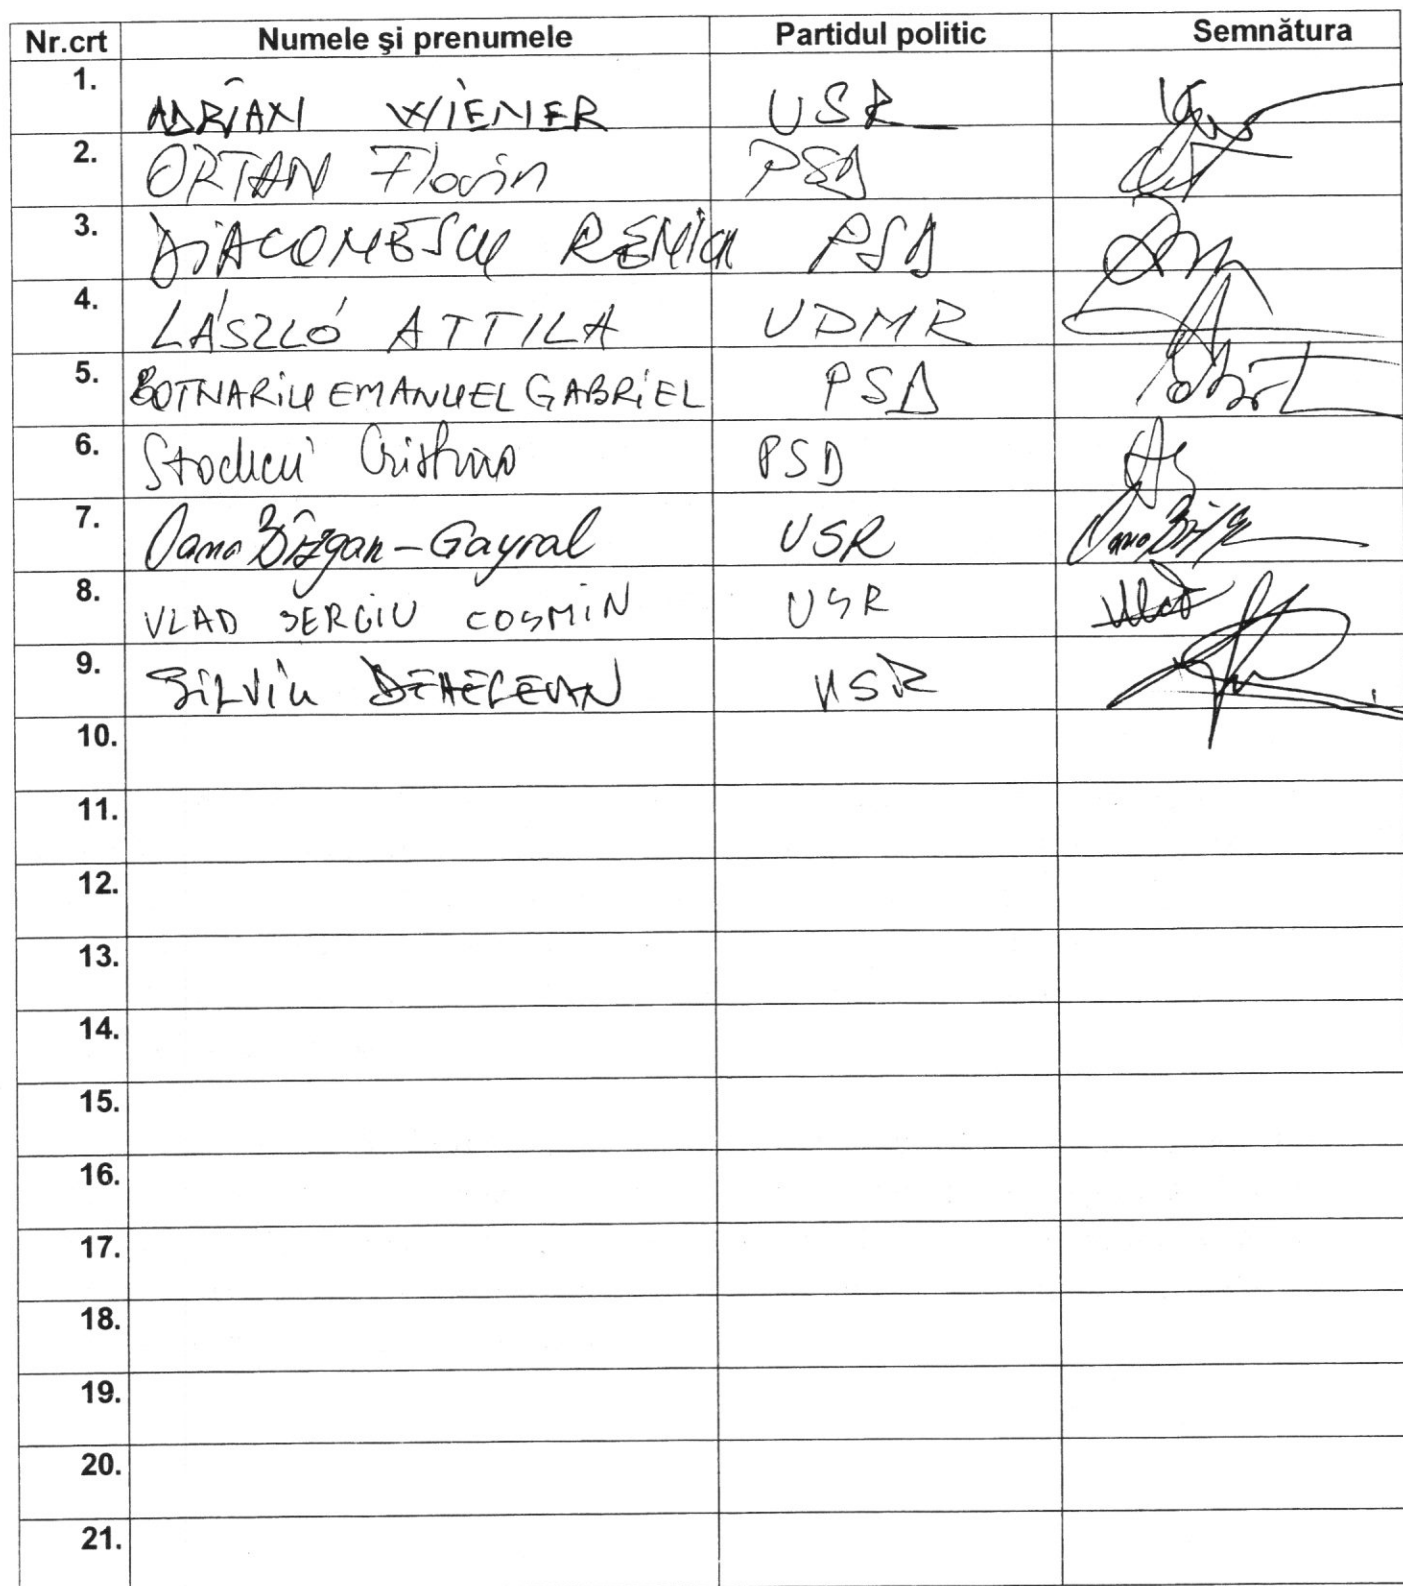 Nr.crt Numele și prenumele Partidul politic Semnătura
1. ADRIAN WIENER USR
2. ORTAN Florin PSD
3. DIACONESCU RENICA PSD
4. LÁSZLÓ ATTILA UDMR
5. BOTNARIU EMANUEL GABRIEL PSD
6. Stocheci Cristina PSD
7. Oana Bîzgan-Gayral USR
8. VLAD SERGIU COSMIN USR
9. SILVIU DEHELEAN USR
10.
11.
12.
13.
14.
15.
16.
17.
18.
19.
20.
21.